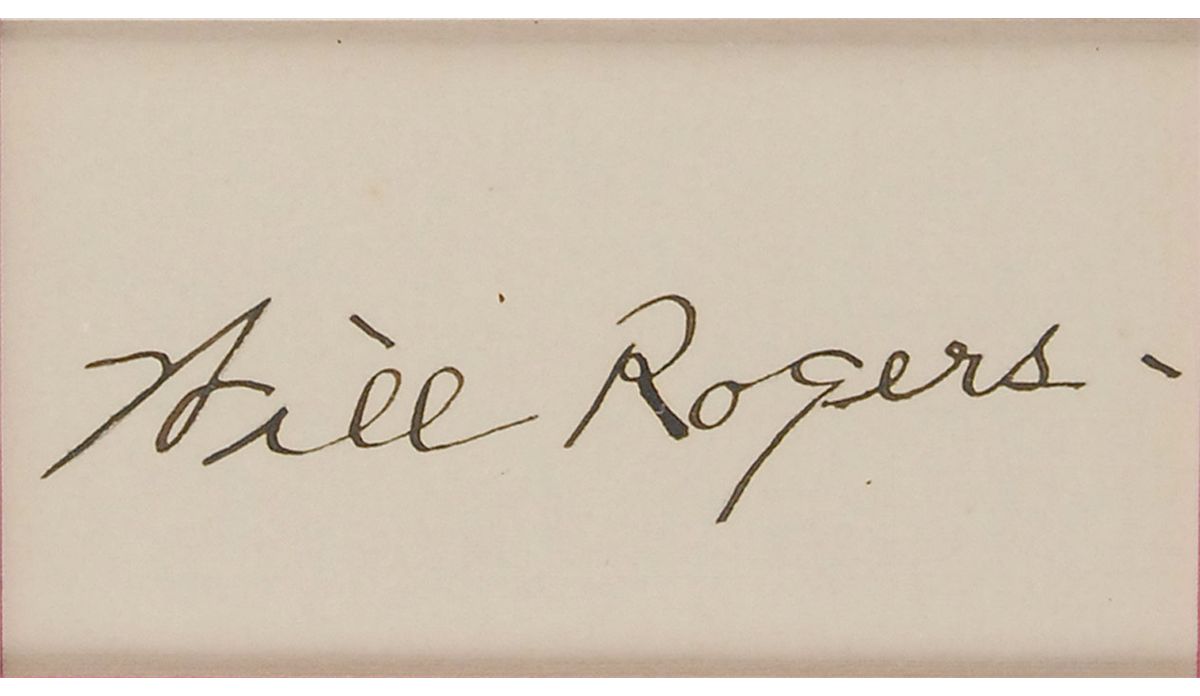 Will Rogers -